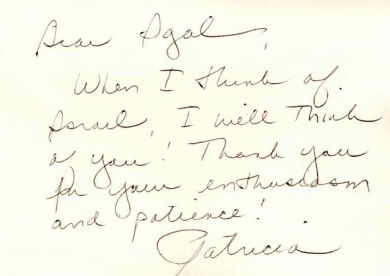 Dear Igal,
When I think of
Israel, I will think
of you! Thank you
for your enthusiasm
and patience!
Patricia